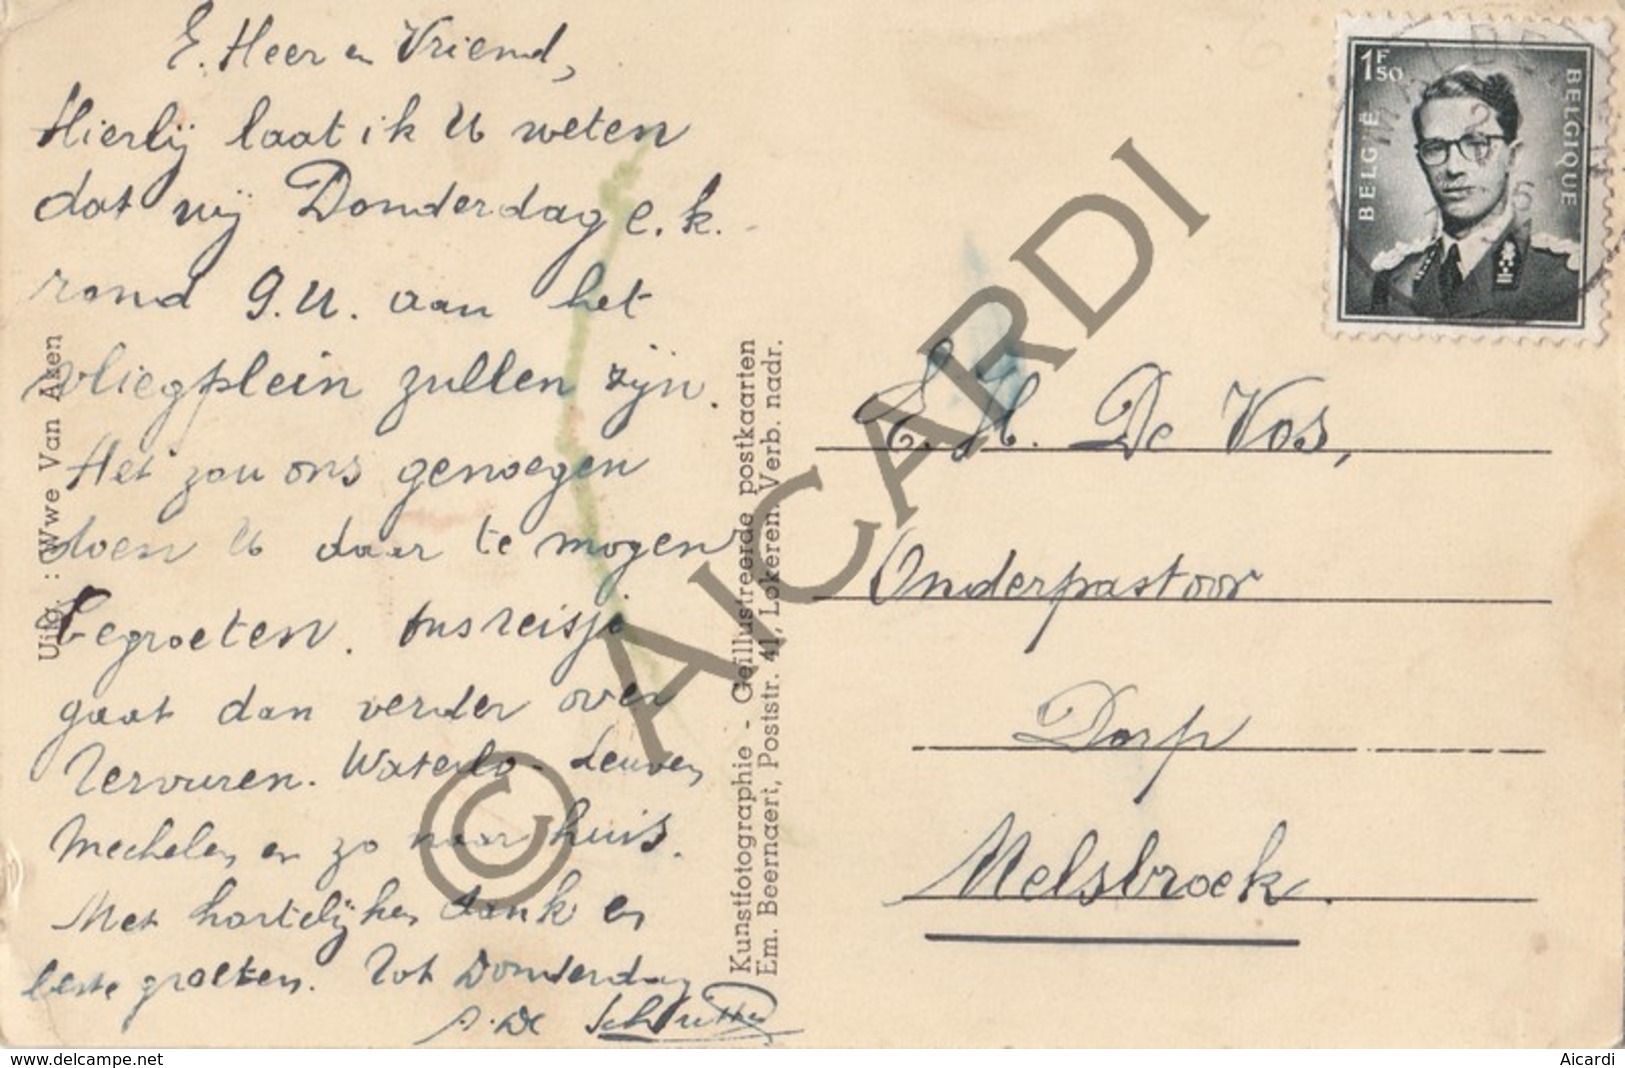 E. Heer en Vriend,
Hierbij laat ik U weten
dat wij Donderdag e.k.
rond 9.U. aan het
vliegplein zullen zijn.
Het zou ons genoegen
doen U daar te mogen
begroeten. Ons reisje
gaat dan verder over
Tervuren. Waterlo - Leuven,
Mechelen en zo naar huis.
Met hartelijken dank en
beste groeten. Tot Donderdag
A. De Schutter
Uitg. : Wwe Van Aken
Kunstfotographie - Geïllustreerde postkaarten
Em. Beernaert, Poststr. 41, Lokeren. Verb. nadr.
1F50
BELGIË
BELGIQUE
E. H. De Vos,
Onderpastoor
Dorp
Melsbroek.
© AICARDI
www.delcampe.net
Aicardi